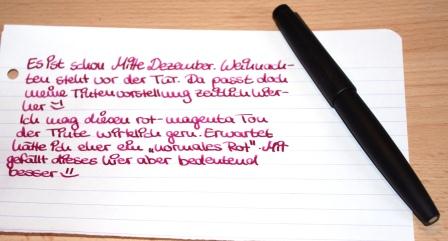 Es ist schon Mitte Dezember. Weihnach-
ten steht vor der Tür. Da passt doch
meine Tintenvorstellung zeitlich hier-
her
Ich mag diesen rot-magenta Ton
der Tinte wirklich gern. Erwartet
hätte ich eher ein „normales Rot". Mir
gefällt dieses hier aber bedeutend
besser